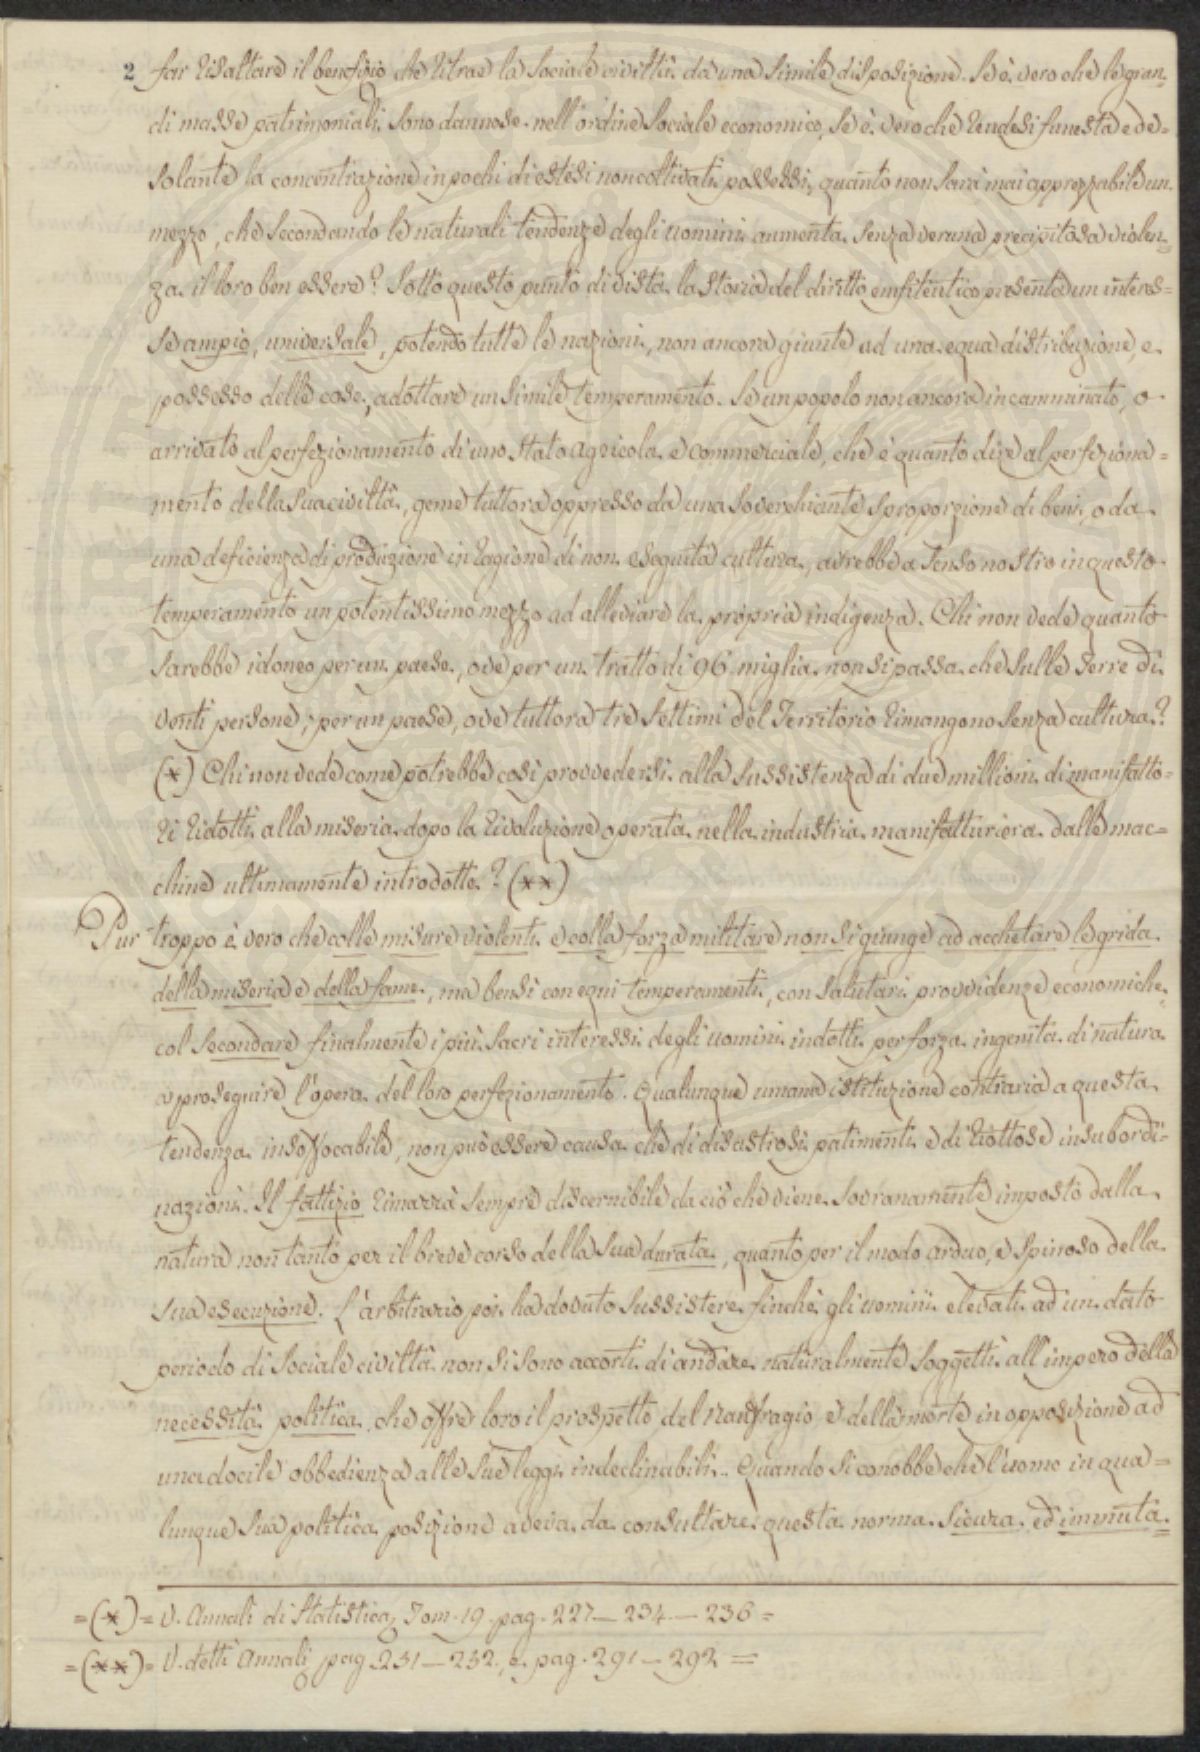 2 far risaltare il benefizio che ritrae la sociale civiltà da una simile disposizione. Se è vero che le gran-
di masse patrimoniali sono dannose nell'ordine sociale economico, se è vero che rendesi funesta e de=
solante la concentrazione in pochi di estesi non coltivati possessi, quanto non sarà mai apprezzabile un
mezzo, che secondando le naturali tendenze degli uomini aumenta senza veruna precipitosa violen-
za il loro ben essere? Sotto questo punto di vista la storia del diritto emfiteutico presenta un interes=
se ampio, universale, potendo tutte le nazioni, non ancora giunte ad una equa distribuzione, e
possesso delle cose, adottare un simile temperamento. Se un popolo non ancora incamminato, o
arrivato al perfezionamento di uno stato agricola e commerciale, che è quanto dire al perfeziona=
mento della sua civiltà, geme tuttora oppresso da una soverchiante sproporzione di beni, o da
una deficienza di produzione in ragione di non eseguita cultura, avrebbe a senso nostro in questo
temperamento un potentissimo mezzo ad alleviare la propria indigenza. Chi non vede quanto
sarebbe idoneo per un paese, ove per un tratto di 96 miglia non si passa che sulle terre di
venti persone; per un paese, ove tuttora tre settimi del Territorio rimangono senza cultura?
(*) Chi non vede come potrebbe così provvedersi alla sussistenza di due millioni di manifatto=
ri ridotti alla miseria dopo la rivoluzione operata nella industria manifatturiera dalle mac=
chine ultimamente introdotte? (**)
Pur troppo è vero che colle misure violenti e colla forza militare non si giunge ad acchetare le grida
della miseria e della fame, ma bensì con equi temperamenti, con salutari provvidenze economiche,
col secondare finalmente i più sacri interessi degli uomini indotti per forza ingenita di natura
a proseguire l'opera del loro perfezionamento. Qualunque umana istituzione contraria a questa
tendenza insoffocabile, non può essere causa che di disastrosi patimenti e di riottose insubordi-
nazioni. Il fattizio rimarrà sempre discernibile da ciò che viene sovranamente imposto dalla
natura non tanto per il breve corso della sua durata, quanto per il modo arduo, e spinoso della
sua esecuzione. L'arbitrario poi ha dovuto sussistere finchè gli uomini elevati ad un dato
periodo di sociale civiltà non si sono accorti di andare naturalmente soggetti all'impero della
necessità politica che offre loro il prospetto del naufragio e della morte in opposizione ad
una docile obbedienza alle sue leggi indeclinabili. Quando si conobbe che l'uomo in qua=
lunque sua politica posizione aveva da consultare questa norma sicura ed immuta=
=(*)= V. Annali di Statistica, Tom. 19. pag. 227 — 234. — 236 =
=(**)= V. detti Annali pag. 231 — 232., e pag. 291 — 292 =